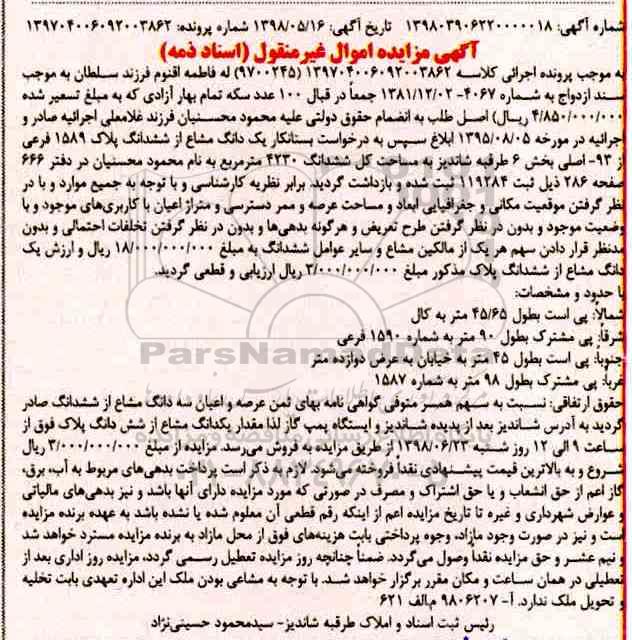 شماره آگهی: ۱۳۹۸۰۳۹۰۶۲۲۰۰۰۰۰۱۸ تاریخ آگهی: ۱۳۹۸/۰۵/۱۶ شماره پرونده: ۱۳۹۷۰۴۰۰۶۰۹۲۰۰۳۸۶۲
آگهی مزایده اموال غیرمنقول (اسناد ذمه)
به موجب پرونده اجرائی کلاسه ۱۳۹۷۰۴۰۰۶۰۹۲۰۰۳۸۶۲ (۹۷۰۰۲۴۵) له فاطمه اقنوم فرزند سلطان به موجب
سند ازدواج به شماره ۴۰۶۷- ۱۳۸۱/۱۲/۰۲ جمعاً در قبال ۱۰۰ عدد سکه تمام بهار آزادی که به مبلغ تسعیر شده
۴/۸۵۰/۰۰۰/۰۰۰ ریال) اصل طلب به انضمام حقوق دولتی علیه محمود محسنیان فرزند غلامعلی اجرائیه صادر و
اجرائیه در مورخه ۱۳۹۵/۰۸/۰۵ ابلاغ سپس به درخواست بستانکار یک دانگ مشاع از ششدانگ پلاک ۱۵۸۹ فرعی
از ۹۳- اصلی بخش ۶ طرقبه شاندیز به مساحت کل ششدانگ ۴۲۳۰ مترمربع به نام محمود محسنیان در دفتر ۶۶۶
صفحه ۲۸۶ ذیل ثبت ۱۱۹۲۸۴ ثبت شده و بازداشت گردید. برابر نظریه کارشناسی و با توجه به جمیع موارد و با در
نظر گرفتن موقعیت مکانی و جغرافیایی ابعاد و مساحت عرصه و ممر دسترسی و متراژ اعیان با کاربری‌های موجود و با
وضعیت موجود و بدون در نظر گرفتن طرح تعریض و هرگونه بدهی‌ها و بدون در نظر گرفتن تخلفات احتمالی و بدون
مدنظر قرار دادن سهم هر یک از مالکین مشاع و سایر عوامل ششدانگ به مبلغ ۱۸/۰۰۰/۰۰۰/۰۰۰ ریال و ارزش یک
دانگ مشاع از ششدانگ پلاک مذکور مبلغ ۳/۰۰۰/۰۰۰/۰۰۰ ریال ارزیابی و قطعی گردید.
با حدود و مشخصات:
شمالا: پی است بطول ۴۵/۶۵ متر به کال
شرقاً: پی مشترک بطول ۹۰ متر به شماره ۱۵۹۰ فرعی
جنوباً: پی است بطول ۴۵ متر به خیابان به عرض دوازده متر
غرباً: پی مشترک بطول ۹۸ متر به شماره ۱۵۸۷
حقوق ارتفاقی: نسبت به سهم همسر متوفی گواهی نامه بهای ثمن عرصه و اعیان سه دانگ مشاع از ششدانگ صادر
گردید به آدرس شاندیز بعد از پدیده شاندیز و ایستگاه پمپ گاز لذا مقدار یکدانگ مشاع از شش دانگ پلاک فوق از
ساعت ۹ الی ۱۲ روز شنبه ۱۳۹۸/۰۶/۲۳ از طریق مزایده به فروش می‌رسد. مزایده از مبلغ ۳/۰۰۰/۰۰۰/۰۰۰ ریال
شروع و به بالاترین قیمت پیشنهادی نقداً فروخته می‌شود. لازم به ذکر است پرداخت بدهی‌های مربوط به آب، برق،
گاز اعم از حق انشعاب و یا حق اشتراک و مصرف در صورتی که مورد مزایده دارای آنها باشد و نیز بدهی‌های مالیاتی
و عوارض شهرداری و غیره تا تاریخ مزایده اعم از اینکه رقم قطعی آن معلوم شده یا نشده باشد به عهده برنده مزایده
است و نیز در صورت وجود مازاد، وجوه پرداختی بابت هزینه‌های فوق از محل مازاد به برنده مزایده مسترد خواهد شد
و نیم عشر و حق مزایده نقداً وصول می‌گردد. ضمناً چنانچه روز مزایده تعطیل رسمی گردد، مزایده روز اداری بعد از
تعطیلی در همان ساعت و مکان مقرر برگزار خواهد شد. با توجه به مشاعی بودن ملک این اداره تعهدی بابت تخلیه
و تحویل ملک ندارد. آ- ۹۸۰۶۲۰۷ م.الف ۶۲۱
رئیس ثبت اسناد و املاک طرقبه شاندیز- سیدمحمود حسینی‌نژاد
ParsNamadData